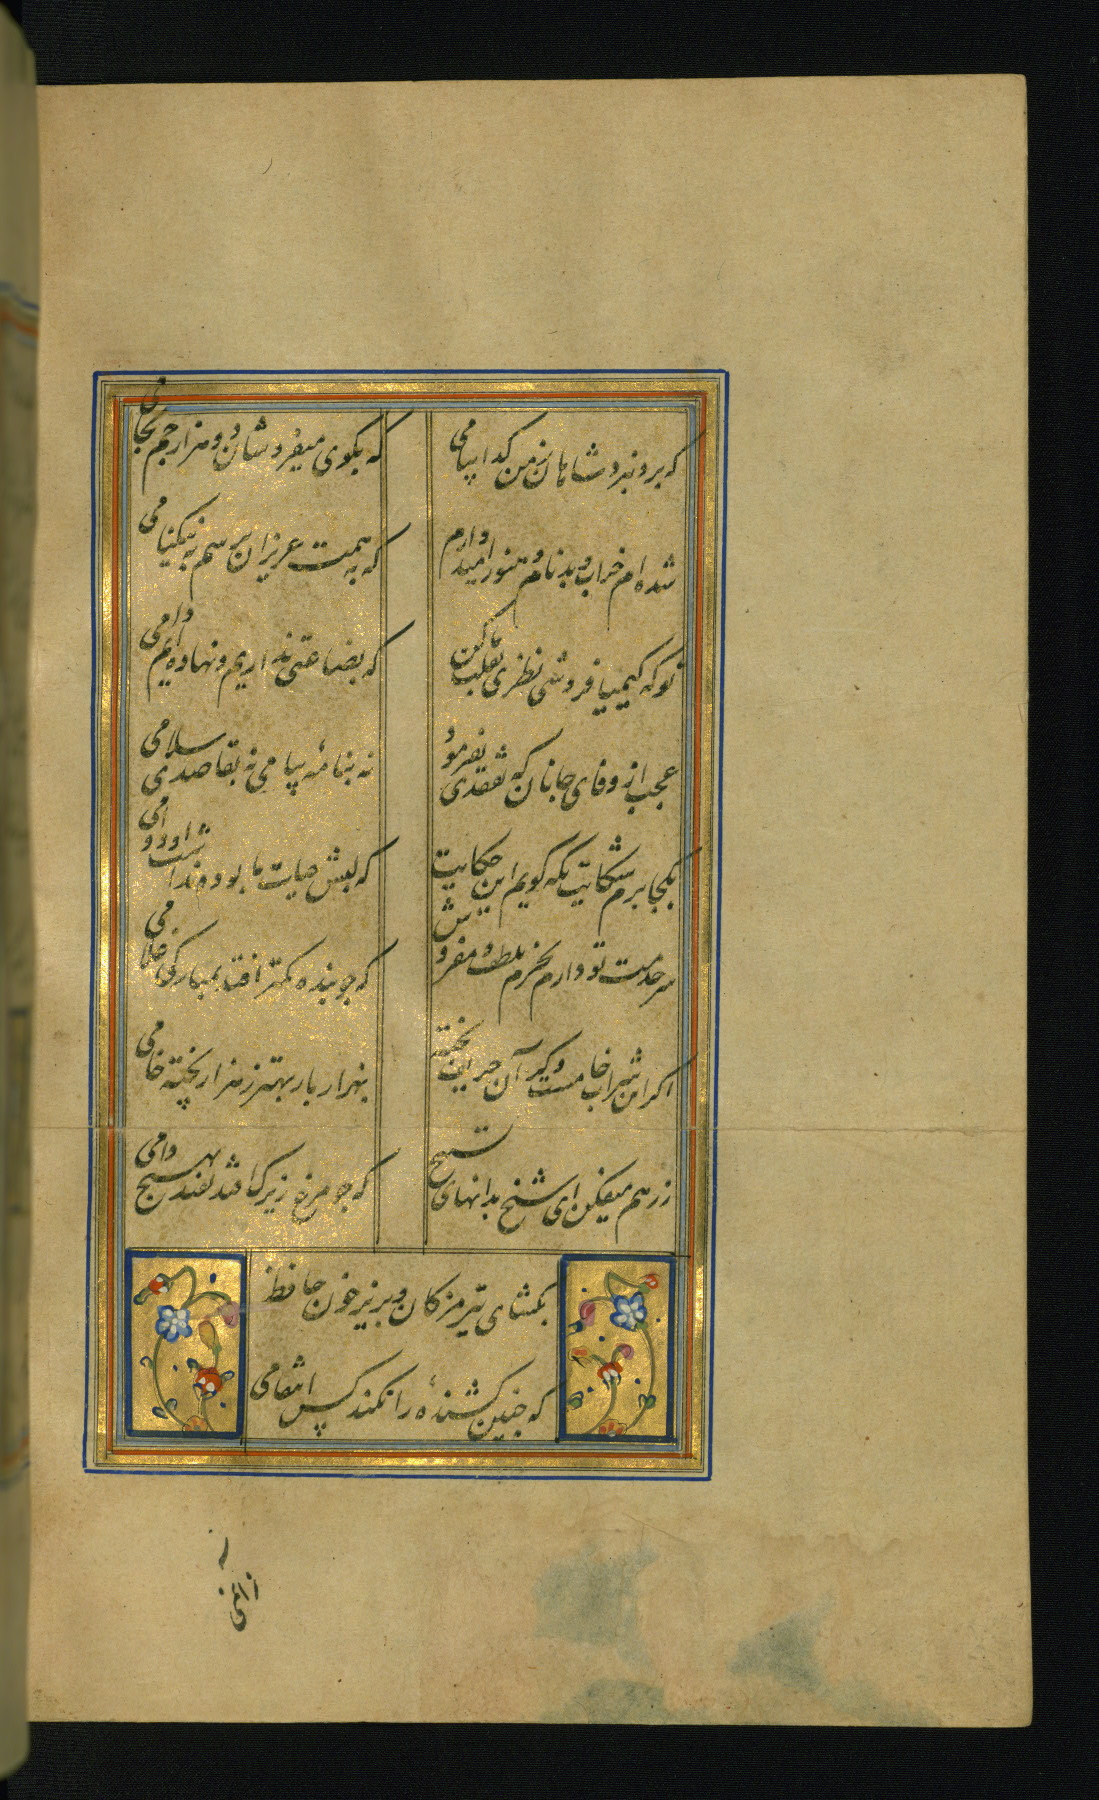 که برد بنزد شاهان ز من گدا پیامی
که بکوی میفروشان دو هزار جم بجامی
شده‌ام خراب و بدنام و هنوز امیدوارم
که به همت عزیزان برسم به نیکنامی
تو که کیمیا فروشی نظری بقلب ما کن
که بضاعتی نداریم و نهاده‌ایم دامی
عجب از وفای جانان که تفقدی نفرمود
نه بنامهٔ پیامی نه بقاصدی سلامی
بکجا برم شکایت بکه گویم این حکایت
که لبش حیات ما بود و نداشت او دوامی
سر خدمت تو دارم بخرم بلطف و مفروش
که چو بنده کمتر افتد بمبارکی غلامی
اگر این شراب خامست و گر آن حریف پخته
بهزار بار بهتر ز هزار پخته خامی
ز رهم میفکن ای شیخ بدانهای تسبیح
که چو مرغ زیرک افتد نفتد بهیچ دامی
بگشای تیر مژگان و بریز خون حافظ
که چنین کشندهٔ را نکند کس انتقامی